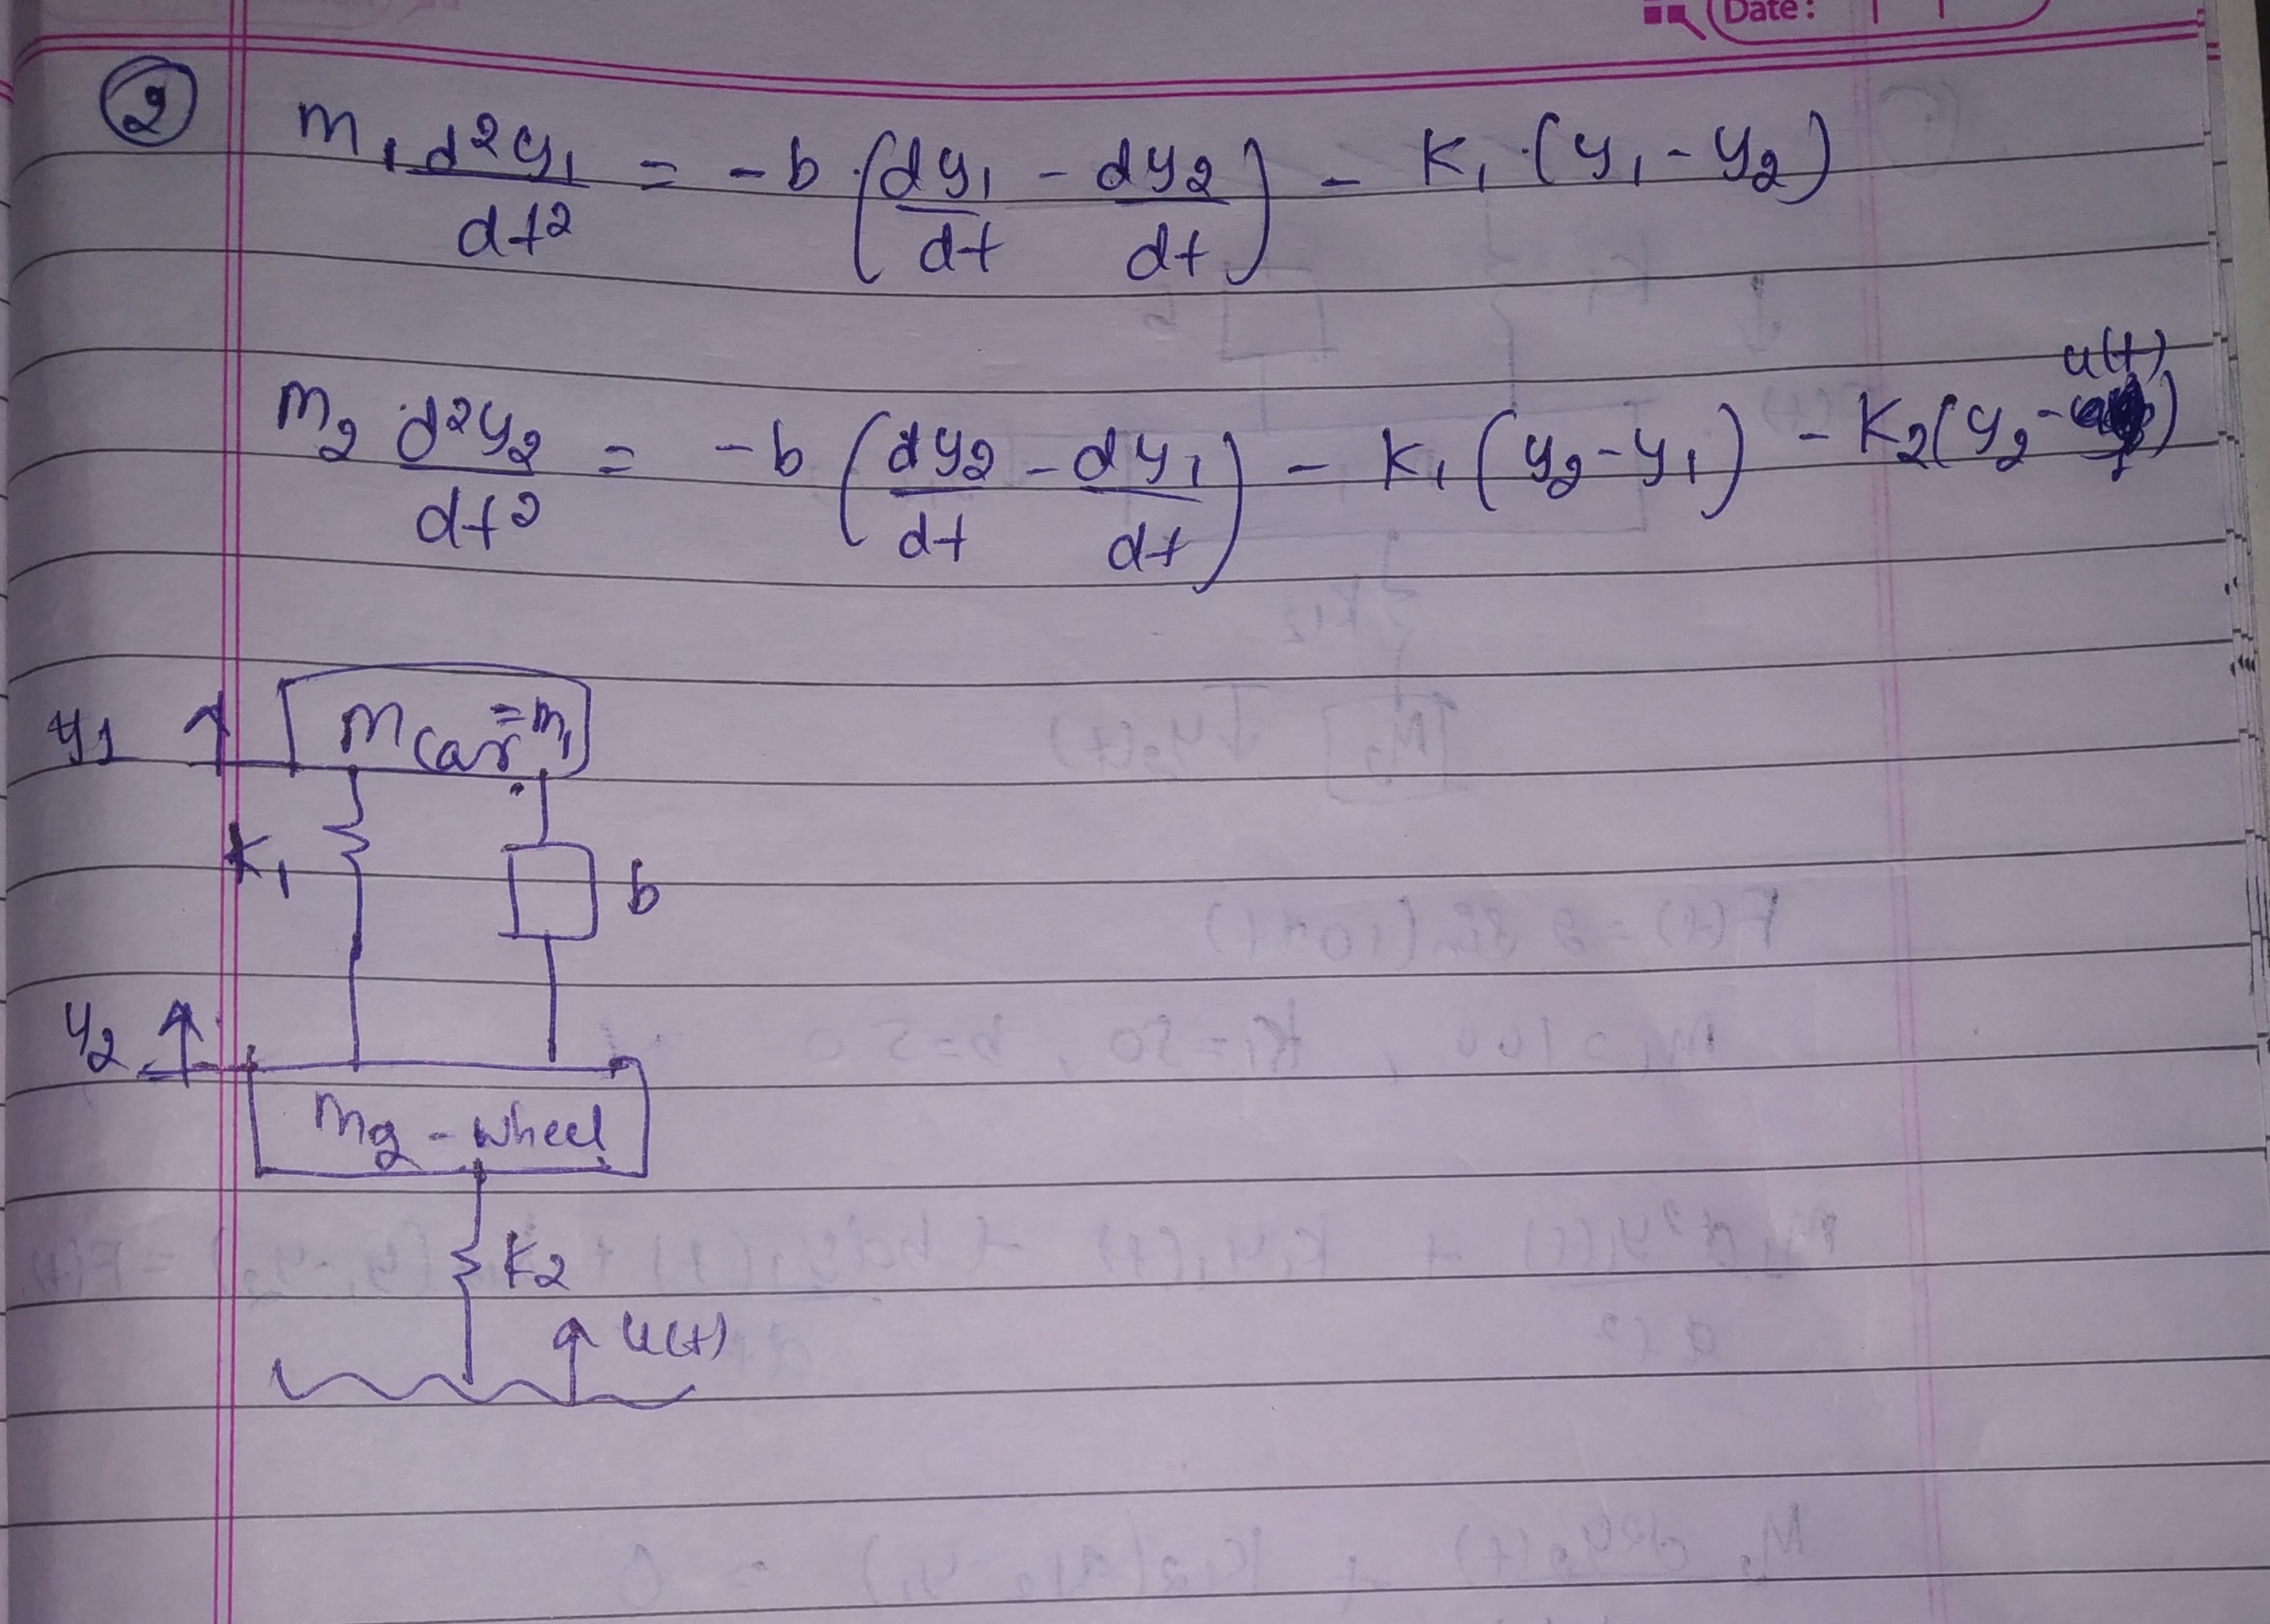 Date:
2
m₁ d²y₁/dt² = -b (dy₁/dt - dy₂/dt) - K₁ (y₁ - y₂)
m₂ d²y₂/dt² = -b (dy₂/dt - dy₁/dt) - K₁ (y₂ - y₁) - K₂ (y₂ - u(t))
y1
mcar = m₁
K₁
b
y₂
m₂ - wheel
K2
u(t)